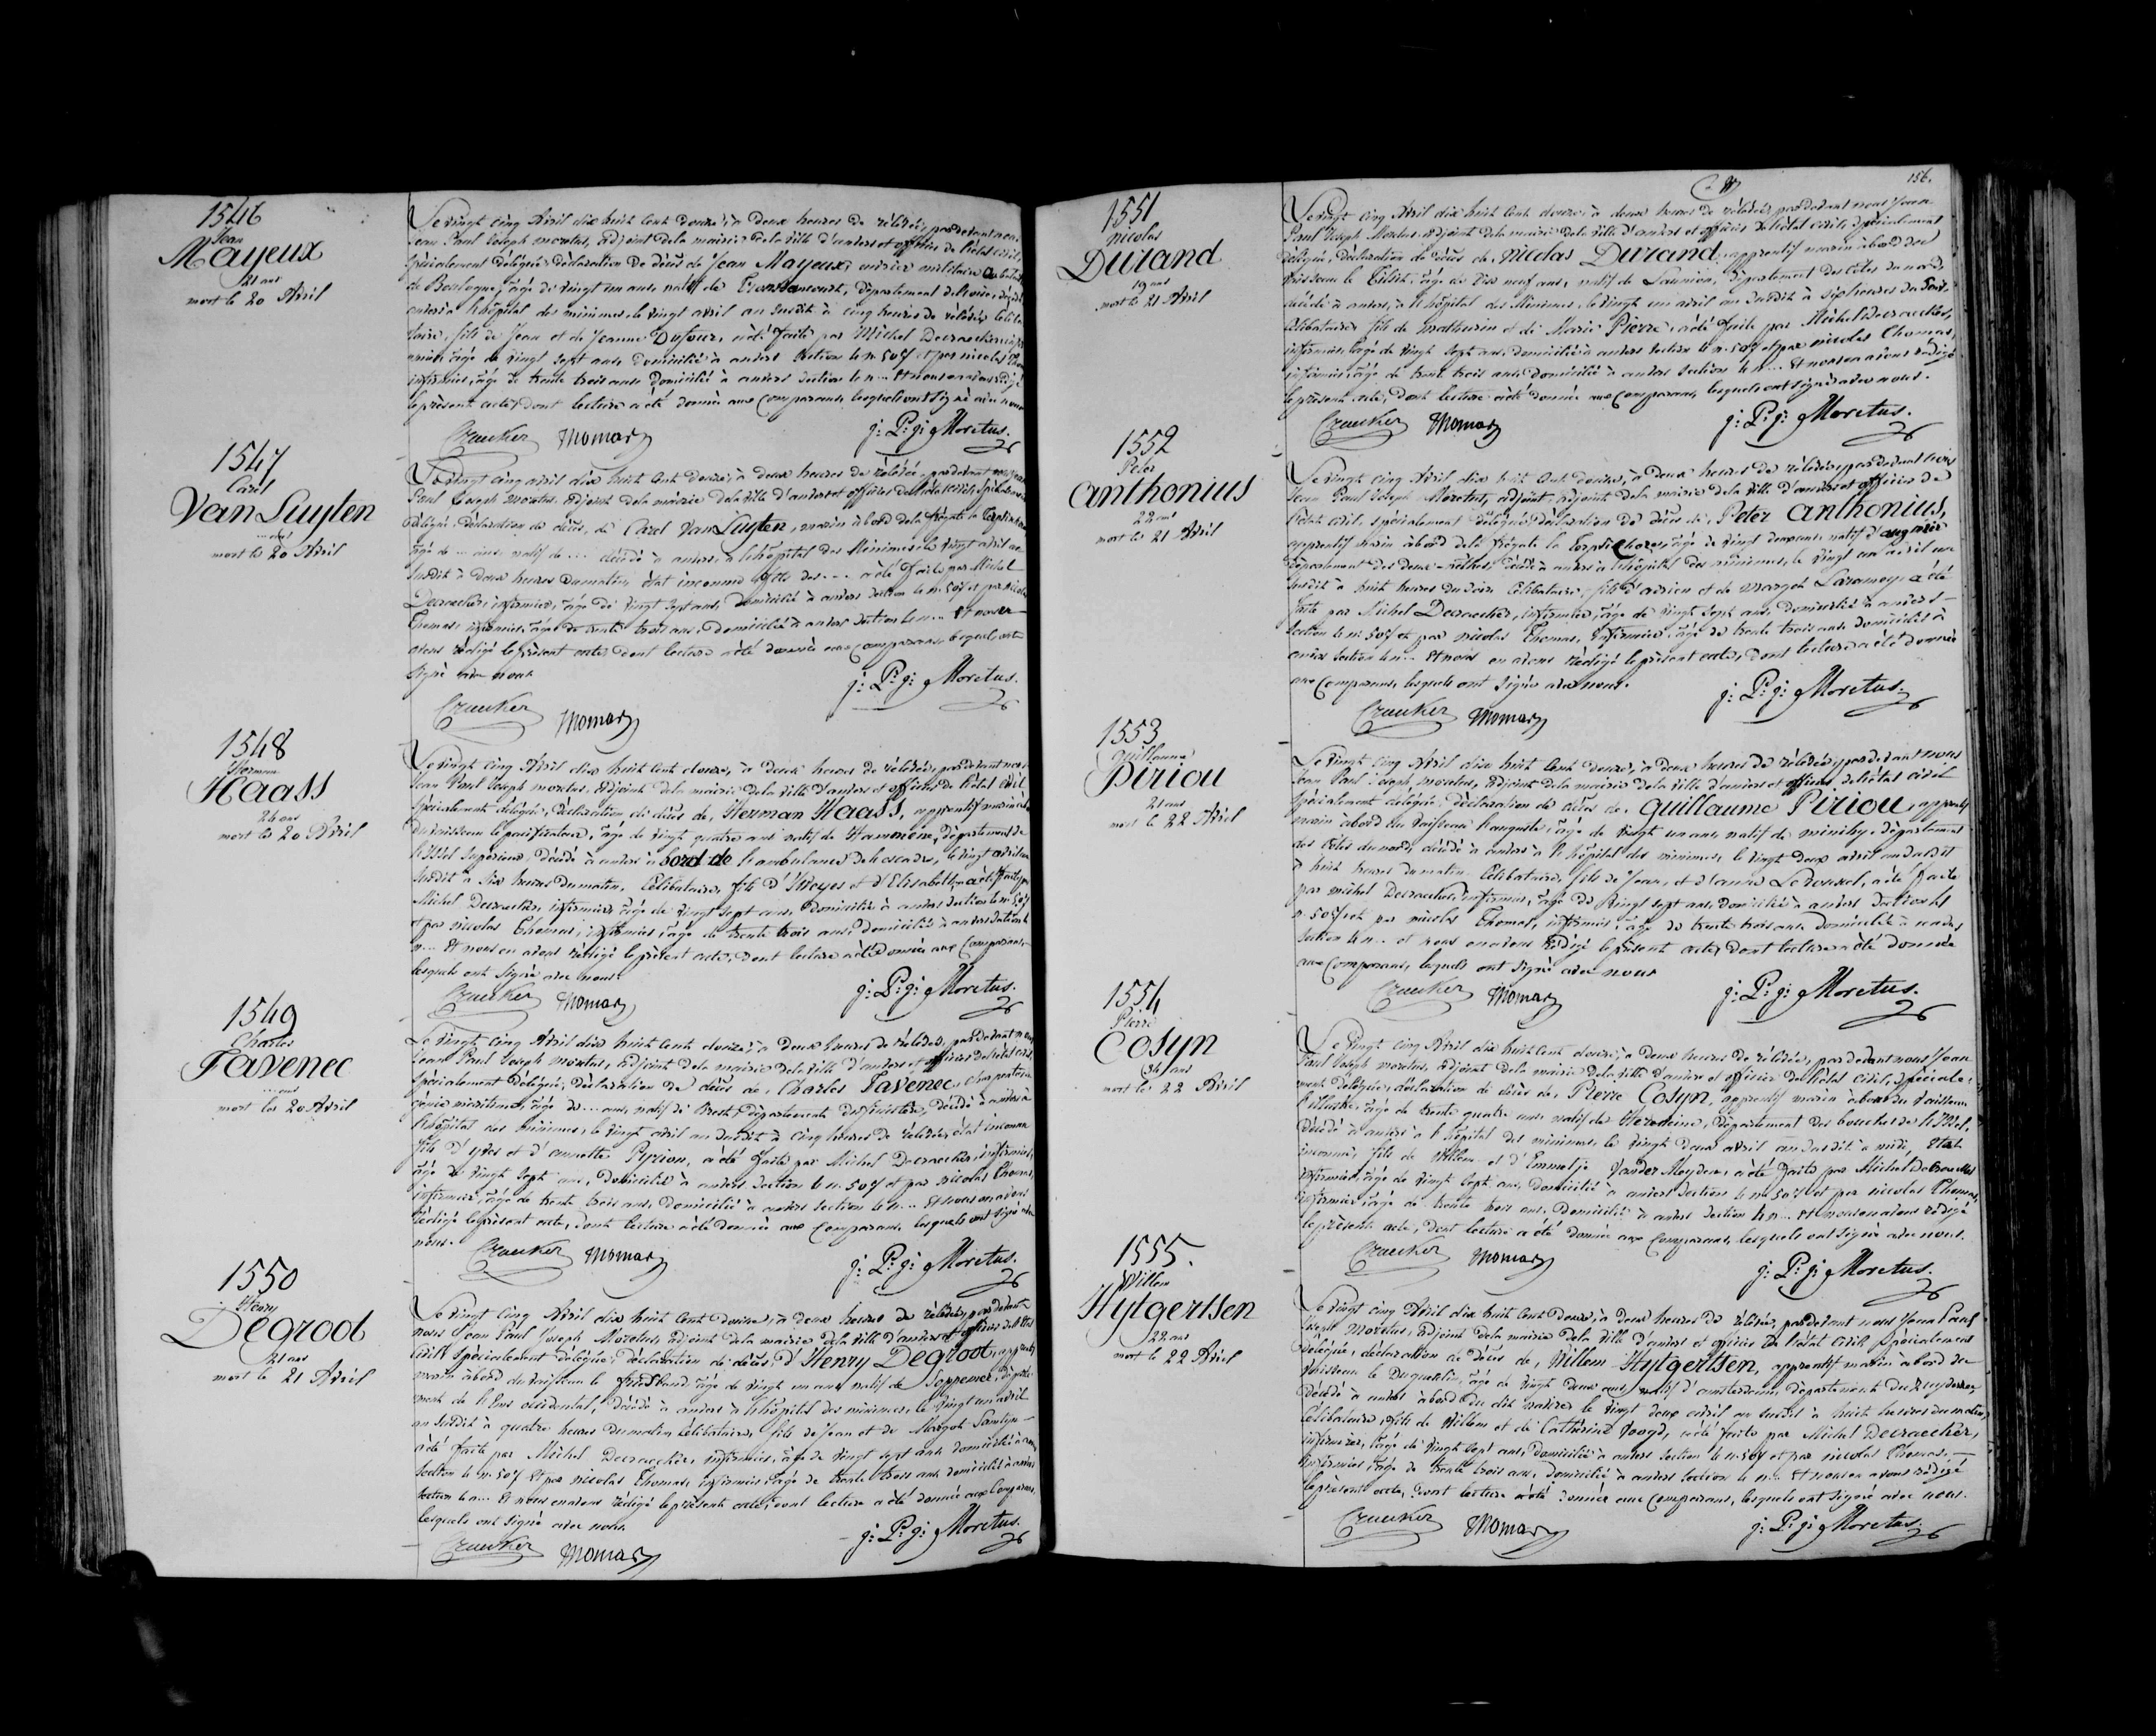 1546
Jean
Mayeux
21 ans
mort le 20 Avril
Le vingt cinq Avril dix huit cent douze, à deux heures de rélévée, pardevant nous
Jean Paul Joseph moretus, adjoint de la mairie de la ville d'anvers et officier de l'état civil,
spécialement délégué, déclaration de décès de Jean Mayeux, ouvrier militaire
de Boulogne, âgé de vingt un ans, natif de département de l'oise, décédé
anvers à l'hôpital des minimes, le vingt avril an susdit à cinq heures de rélévée, céliba-
taire, fils de Jean et de Jeanne Dufour, a été faite par Michel Decraecker
âgé de vingt sept ans, domicilié à anvers section 4e n. 507 et par nicolas Thomas
infirmier, âgé de trente trois ans domicilié à anvers section 4e n... Et nous en avons rédigé
le présent acte, dont lecture a été donnée aux comparans, lesquels ont signé avec nous
Craecker Thomas j: P: j: Moretus.
1547
Carel
Van Luyten
... ans
mort le 20 Avril
Le vingt cinq avril dix huit cent douze, à deux heures de rélévée, pardevant nous Jean
Paul Joseph moretus, adjoint de la mairie de la ville d'anvers et officier de l'état civil, spécialement
délégué, déclaration de décès, de Carel Van Luyten, marin à bord de la frégate la
âgé de ... ans, natif de ... décédé à anvers, à l'hôpital des Minimes, le vingt avril an
susdit à deux heures du matin, état inconnu fils de ... a été faite par Michel
Decraecker, infirmier, âgé de vingt sept ans, domicilié à anvers section 4e n. 507 et par nicolas
Thomas, infirmier, âgé de trente trois ans, domicilié à anvers section 4e n... Et nous en
avons rédigé le présent acte, dont lecture a été donnée aux comparans, lesquels ont
signé avec nous j: P: j: Moretus.
Craecker Thomas
1548
Herman
Haass
24 ans
mort le 20 Avril
Le vingt cinq Avril dix huit cent douze, à deux heures de rélévée, pardevant nous
Jean Paul Joseph moretus, adjoint de la mairie de la ville d'anvers et officier de l'état civil
spécialement délégué, déclaration de décès de, Herman Haass, apprentif marin
du vaisseau le pacificateur, âgé de vingt quatre ans natif de département de
l'Issel supérieur, décédé à anvers à bord de l'ambulance de l'escadre, le vingt avril an
susdit à six heures du matin, Célibataire, fils d' et d'Elisabeth, a été faite par
Michel Decraecker, infirmier, âgé de vingt sept ans, domicilié à anvers section 4e n. 507
et par nicolas Thomas, infirmier, âgé de trente trois ans, domicilié à anvers section 4e
n... Et nous en avons rédigé le présent acte, dont lecture a été donnée aux comparans,
lesquels ont signé avec nous. j: P: j: Moretus.
Craecker Thomas
1549
Charles
Favenec
... ans
mort le 20 Avril
Le vingt cinq Avril dix huit cent douze, à deux heures de rélévée, pardevant nous
Jean Paul Joseph moretus, adjoint de la mairie de la ville d'anvers et officier de l'état civil,
spécialement délégué, déclaration de décès de, Charles Favenec, charpentier
génie maritime, âgé de ... ans, natif de Brest, département du finistère, décédé à anvers à
l'hôpital des minimes, le vingt avril an susdit à cinq heures de rélévée, état inconnu
fils d'yves et d'annette Pyrion, a été faite par Michel Decraecker, infirmier,
âgé de vingt sept ans, domicilié à anvers section 4e n. 507 et par nicolas Thomas,
infirmier, âgé de trente trois ans, domicilié à anvers section 4e n... Et nous en avons
rédigé le présent acte, dont lecture a été donnée aux comparans, lesquels ont signé avec
nous. Craecker Thomas j: P: j: Moretus.
1550
Henry
Degroot
21 ans
mort le 21 Avril
Le vingt cinq Avril dix huit cent douze, à deux heures de rélévée, pardevant
nous Jean Paul Joseph Moretus, adjoint de la mairie de la ville d'anvers et officier de l'état
civil spécialement délégué, déclaration de décès, d'Henry Degroot, apprenti
marin à bord du vaisseau le friedland âgé de vingt un ans, natif de Sappemer, départe-
ment de l'Ems occidental, décédé à anvers à l'hôpital des minimes, le vingt un avril
an susdit à quatre heures du matin, Célibataire, fils de Jean et de Margot
a été faite par Michel Decraecker, infirmier, âgé de vingt sept ans domicilié à anvers
section 4e n. 507 Et par nicolas Thomas, infirmier, âgé de trente trois ans, domicilié à anvers
section 4e n... Et nous en avons rédigé le présent acte, dont lecture a été donnée aux comparans,
lesquels ont signé avec nous. j: P: j: Moretus.
Craecker Thomas
156.
1551
Nicolas
Durand
19 ans
mort le 21 Avril
Le vingt cinq Avril dix huit cent douze, à deux heures de rélévée, pardevant nous Jean
Paul Joseph Moretus, adjoint de la mairie de la ville d'anvers et officier de l'état civil, spécialement
délégué, déclaration de décès de, Nicolas Durand, apprentif marin à bord du
vaisseau le Tilsit, âgé de dix neuf ans, natif de Lannion, département des côtes du nord,
décédé à anvers, à l'hôpital des Minimes, le vingt un avril an susdit à six heures du soir,
Célibataire, fils de Mathurin et de Marie Pierre, a été faite par Michel Decraecker,
infirmier, âgé de vingt sept ans, domicilié à anvers section 4e n. 507 et par nicolas Thomas,
infirmier, âgé de trente trois ans, domicilié à anvers section 4e n... Et nous en avons rédigé
le présent acte, dont lecture a été donnée aux comparans, lesquels ont signé avec nous.
Craecker Thomas j: P: j: Moretus.
1552
Peter
Anthonius
22 ans
mort le 21 Avril
Le vingt cinq Avril dix huit cent douze, à deux heures de rélévée, pardevant nous
Jean Paul Joseph Moretus, adjoint, adjoint de la mairie de la ville d'anvers et officier de
l'état civil, spécialement délégué, déclaration de décès de, Peter Anthonius,
apprentif marin à bord de la frégate la Terpsichore, âgé de vingt deux ans, natif d'
département des deux-nethes, décédé à anvers à l'hôpital des minimes, le vingt un avril an
susdit à huit heures du soir Célibataire, fils d'adrien et de margot Laramoy a été
faite par Michel Decraecker, infirmier, âgé de vingt sept ans, domicilié à anvers
section 4e n. 507 et par nicolas Thomas, infirmier, âgé de trente trois ans, domicilié à
anvers section 4e n... Et nous en avons rédigé le présent acte, dont lecture a été donnée
aux comparans, lesquels ont signé avec nous. j: P: j: Moretus.
Craecker Thomas
1553
Guillaume
Piriou
21 ans
mort le 22 Avril
Le vingt cinq Avril dix huit cent douze, à deux heures de rélévée, pardevant nous
Jean Paul Joseph moretus, adjoint de la mairie de la ville d'anvers et officier de l'état civil
spécialement délégué, déclaration de décès de, Guillaume Piriou, apprentif
marin à bord du vaisseau l'auguste, âgé de vingt un ans, natif de minihy, département
des côtes du nord, décédé à anvers à l'hôpital des minimes, le vingt deux avril an susdit
à huit heures du matin, Célibataire, fils de Jean, et d'anne Le Roussel, a été faite
par michel Decraecker, infirmier, âgé de vingt sept ans, domicilié à anvers section 4e
n. 507 et par nicolas Thomas, infirmier, âgé de trente trois ans domicilié à anvers
section 4e n... et nous en avons rédigé le présent acte, dont lecture a été donnée
aux comparans, lesquels ont signé avec nous j: P: j: Moretus.
Craecker Thomas
1554
Pierre
Cosyn
34 ans
mort le 22 Avril
Le vingt cinq Avril dix huit cent douze, à deux heures de rélévée, pardevant nous Jean
Paul Joseph moretus, adjoint de la mairie de la ville d'anvers et officier de l'état civil, spéciale-
ment délégué, déclaration de décès de, Pierre Cosyn, apprentif marin à bord du vaisseau
l'illustre, âgé de trente quatre ans, natif de département des bouches de l'Issel,
décédé à anvers à l'hôpital des minimes, le vingt deux avril an susdit à midi, état
inconnu, fils de Willem et d'Emmetje Vander Meyden, a été faite par Michel Decraecker
infirmier, âgé de vingt sept ans, domicilié à anvers section 4e n. 507 et par nicolas Thomas,
infirmier, âgé de trente trois ans, domicilié à anvers section 4e n... Et nous en avons rédigé
le présent acte, dont lecture a été donnée aux comparans, lesquels ont signé avec nous.
Craecker Thomas j: P: j: Moretus.
1555.
Willem
Hylgertsen
22 ans
mort le 22 Avril
Le vingt cinq Avril dix huit cent douze, à deux heures de rélévée, pardevant nous Jean Paul
Joseph Moretus, adjoint de la mairie de la ville d'anvers et officier de l'état civil, spécialement
délégué, déclaration de décès de, Willem Hylgertsen, apprentif marin à bord du
vaisseau le Duguesclin, âgé de vingt deux ans, natif d'amsterdam, département du Zuyderzée
décédé à anvers à bord du dit navire le vingt deux avril an susdit à huit heures du matin,
Célibataire, fils de Willem et de Catherine Voogd, a été faite par Michel Decraecker,
infirmier, âgé de vingt sept ans, domicilié à anvers section 4e n. 507 et par nicolas Thomas,
infirmier, âgé de trente trois ans, domicilié à anvers section 4e n... Et nous en avons rédigé
le présent acte, dont lecture a été donnée aux comparans, lesquels ont signé avec nous.
Craecker Thomas j: P: j: Moretus.